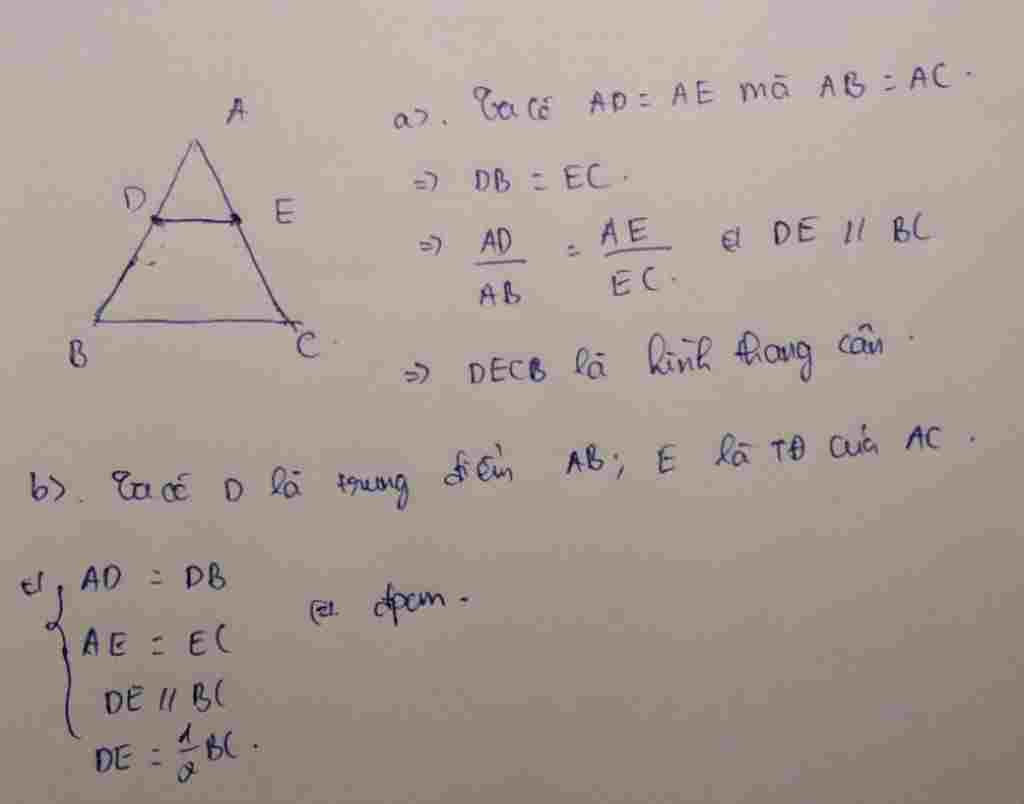 A
D
E
B
C
a>. Ta có AD = AE mà AB = AC.
=> DB = EC.
=> AD/AB = AE/EC. DE // BC
=> DECB là hình thang cân.
b>. Ta có D là trung điểm AB; E là TĐ của AC.
AD = DB
AE = EC
đpcm.
DE // BC
DE = 1/2 BC.